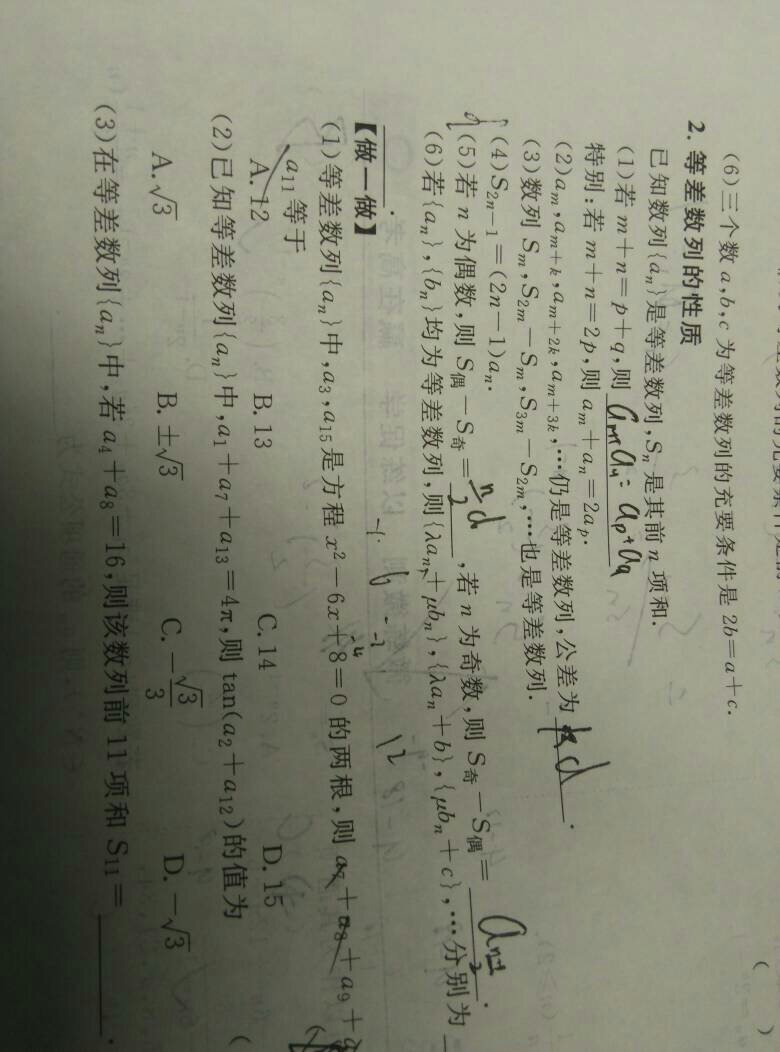 (6)三个数 a,b,c 为等差数列的充要条件是 2b=a+c.
2. 等差数列的性质
已知数列{aₙ}是等差数列,Sₙ是其前 n 项和.
(1)若 m+n=p+q,则
特别:若 m+n=2p,则 aₘ+aₙ=2aₚ.
(2)aₘ,aₘ₊ₖ,aₘ₊₂ₖ,aₘ₊₃ₖ,…仍是等差数列,公差为 kd.
(3)数列 Sₘ,S₂ₘ-Sₘ,S₃ₘ-S₂ₘ,…也是等差数列.
(4)S₂ₙ₋₁=(2n-1)aₙ.
(5)若 n 为偶数,则 S偶-S奇=n/2 d,若 n 为奇数,则 S奇-S偶=
(6)若{aₙ},{bₙ}均为等差数列,则{λaₙ+μbₙ},{λaₙ+b},{μbₙ+c},…分别为
【做一做】
(1)等差数列{aₙ}中,a₃,a₁₅是方程 x²-6x+8=0 的两根,则 a₇+a₈+a₉+
a₁₁等于
A. 12 B. 13 C. 14 D. 15
(2)已知等差数列{aₙ}中,a₁+a₇+a₁₃=4π,则 tan(a₂+a₁₂)的值为 (
A. √3 B. ±√3 C. -√3/3 D. -√3
(3)在等差数列{aₙ}中,若 a₄+a₈=16,则该数列前 11 项和 S₁₁=